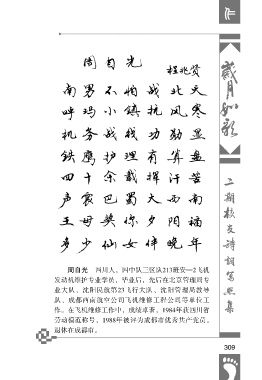 周自光
程兆贤
南男不怕战北天
呼玛小镇抗风寒
机务战线功勋显
铁鹰护理有算盘
四十余载挥汗苦
声震巴蜀大西南
王母奖你夕阳福
多少仙女伴晚年
周自光 四川人,四中队三区队213班安—2飞机
发动机维护专业学员,毕业后,先后在北京管理局专
业大队、沈阳民航第23飞行大队、沈阳管理局教导
队、成都西南航空公司飞机维修工程公司等单位工
作。在飞机维修工作中,成绩卓著,1984年获四川省
劳动模范称号,1988年被评为成都市优秀共产党员。
退休在成都市。
岁月如歌
二期校友诗词写照集
309